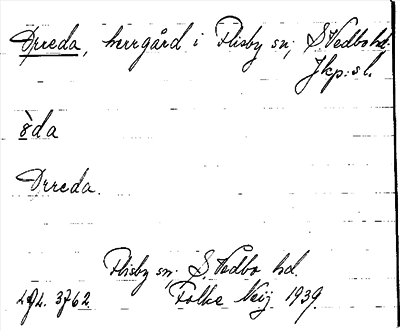 Örreda, herrgård i Flisby sn, S. Vedbo hd.
Jkp:s l.
èda
Örreda.
Flisby sn. S. Vedbo hd.
Folke Neij 1939.